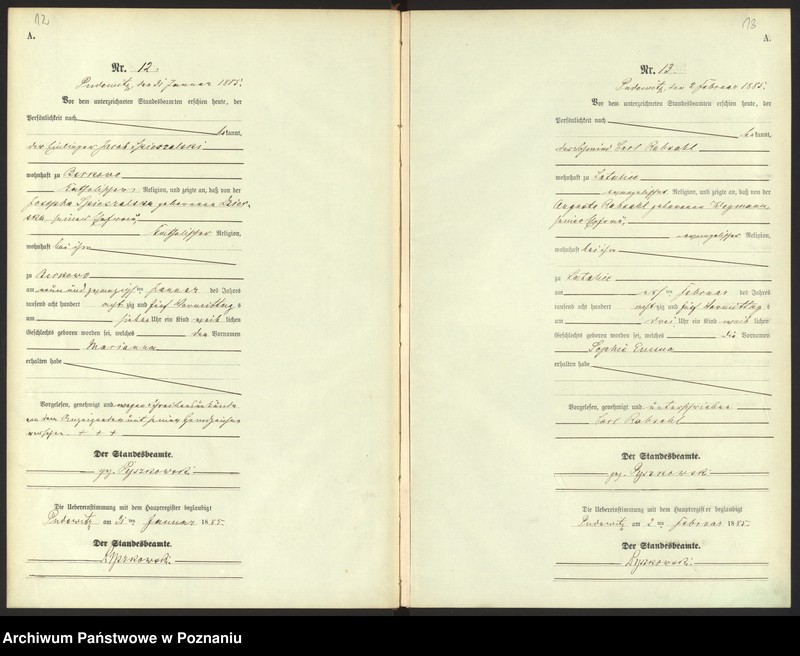 12
A.
Nr. 12.
Pudewitz, den 31 Januar 1885.
Vor dem unterzeichneten Standesbeamten erschien heute, der
Persönlichkeit nach
bekannt,
der Einlieger Jacob
wohnhaft zu Berkowo
katholischer Religion, und zeigte an, daß von der
Josepha geborenen
seiner Ehefrau,
katholischer Religion,
wohnhaft bei ihm
zu Berkowo
am neun und zwanzigsten Januar des Jahres
tausend acht hundert achtzig und fünf Vormittags
um sieben Uhr ein Kind weiblichen
Geschlechts geboren worden sei, welches den Vornamen
Marianna
erhalten habe
Vorgelesen, genehmigt und wegen Schreibensunkunde
von dem Anzeigenden mit seinem Handzeichen
versehen. + + +
Der Standesbeamte.
gez. Pyszkowski
Die Uebereinstimmung mit dem Hauptregister beglaubigt
Pudewitz am 31ten Januar 1885.
Der Standesbeamte.
Pyszkowski.
13
A.
Nr. 13.
Pudewitz, den 2 Februar 1885.
Vor dem unterzeichneten Standesbeamten erschien heute, der
Persönlichkeit nach
bekannt,
der Schmied Carl Rabsahl
wohnhaft zu Latalice
evangelischer Religion, und zeigte an, daß von der
Auguste Rabsahl geborenen Wegmann,
seiner Ehefrau,
evangelischer Religion,
wohnhaft bei ihm
zu Latalice
am ersten Februar des Jahres
tausend acht hundert achtzig und fünf Vormittags
um drei Uhr ein Kind weiblichen
Geschlechts geboren worden sei, welches die Vornamen
Sophie Emma
erhalten habe
Vorgelesen, genehmigt und unterschrieben
Carl Rabsahl
Der Standesbeamte.
gez. Pyszkowski
Die Uebereinstimmung mit dem Hauptregister beglaubigt
Pudewitz am 2ten Februar 1885.
Der Standesbeamte.
Pyszkowski.
Archiwum Państwowe w Poznaniu